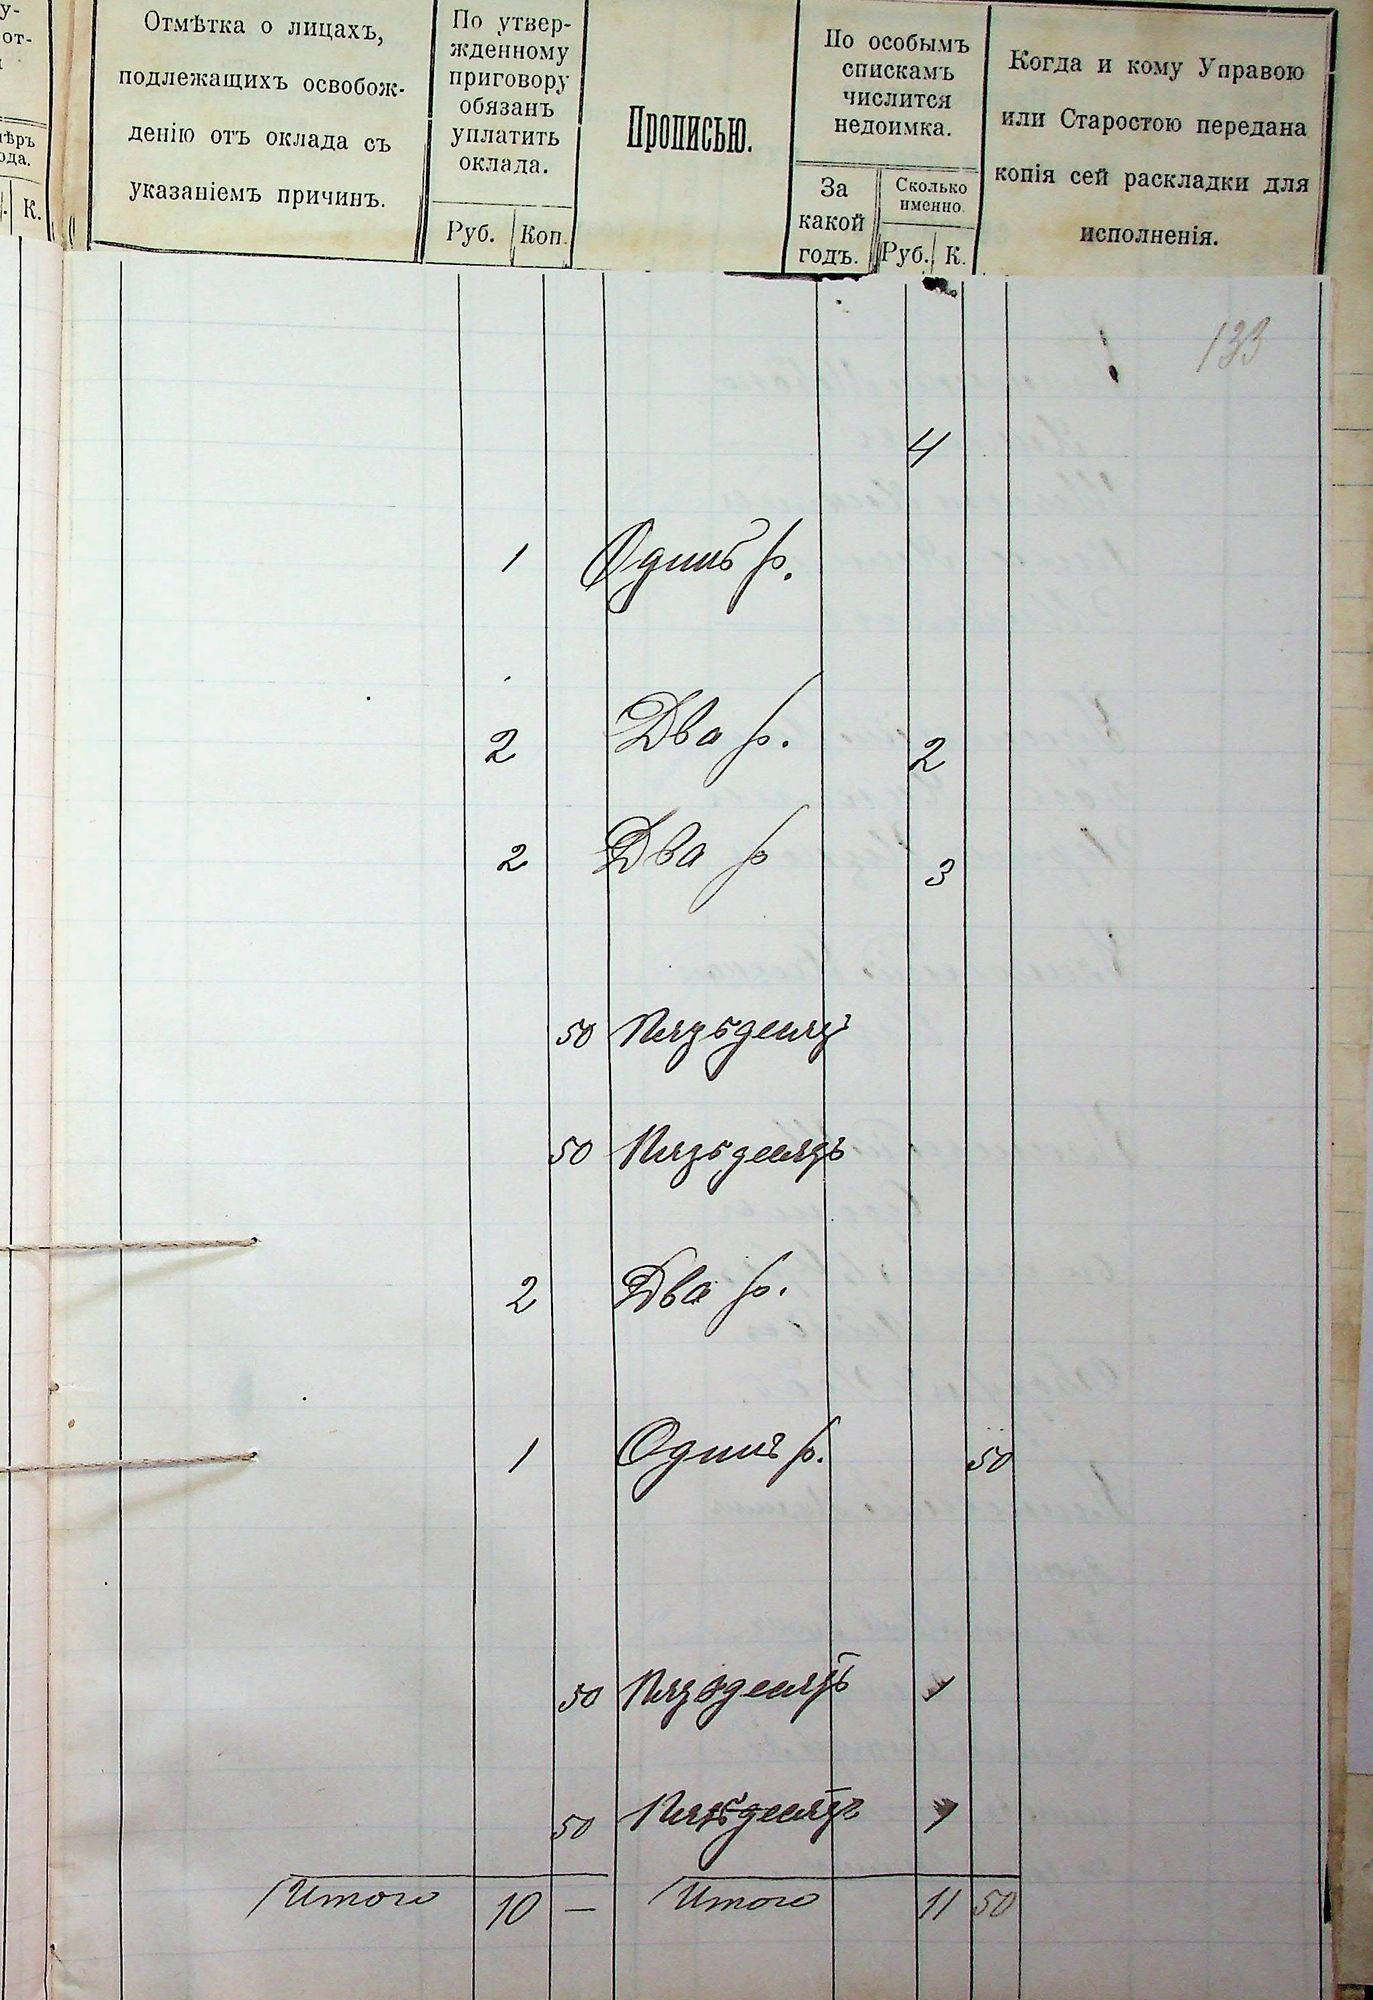 у-
от-
ѣръ
ода.
К.
Отмѣтка о лицахъ,
подлежащихъ освобож-
денію отъ оклада съ
указаніемъ причинъ.
По утвер-
жденному
приговору
обязанъ
уплатить
оклада.
Руб. Коп.
Прописью.
По особымъ
спискамъ
числится
недоимка.
За
какой
годъ.
Сколько
именно.
Руб. К.
Когда и кому Управою
или Старостою передана
копія сей раскладки для
исполненія.
133
4
1 Одинъ р.
2 Два р. 2
2 Два р 3
50 Пятьдесят
50 Пятьдесятъ
2 Два р.
1 Одинъ р. 50
50 Пятьдесятъ 1
50 Пятьдесятъ 1
Итого 10 — Итого 11 50